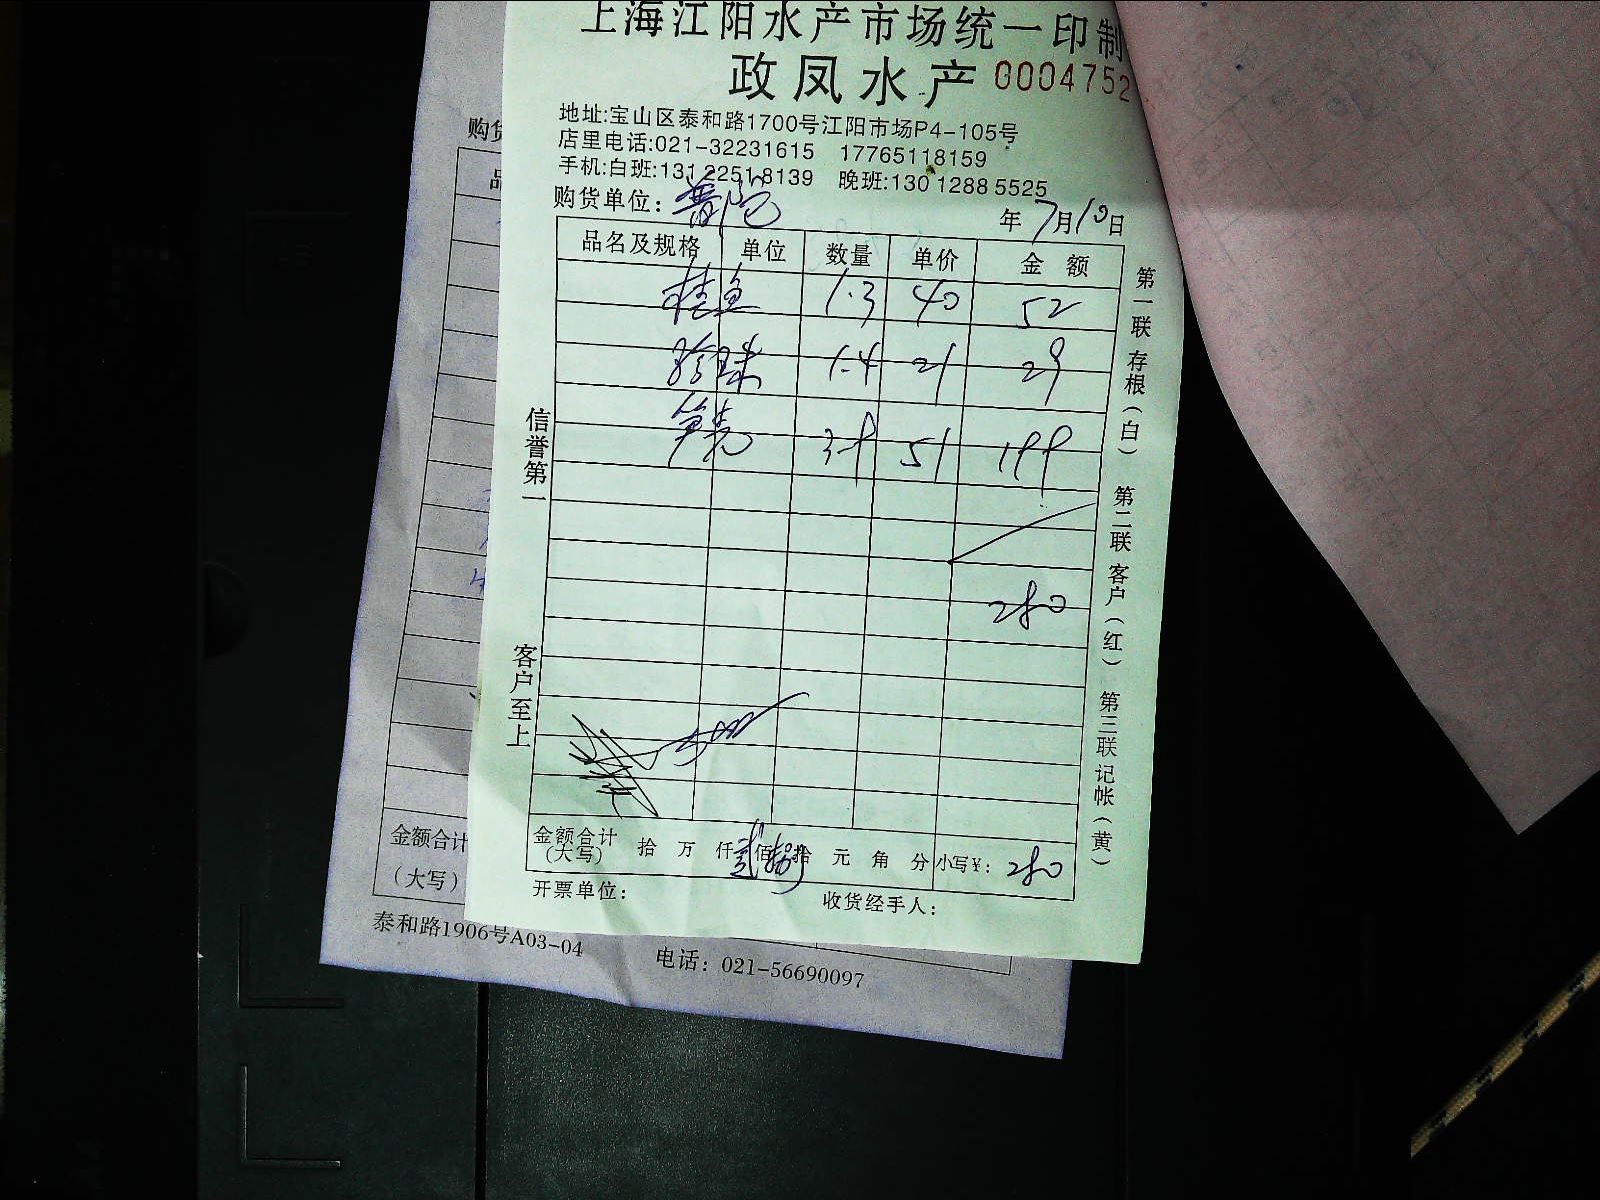 上海江阳水产市场统一印制
政凤水产 0004752
地址:宝山区泰和路1700号江阳市场P4-105号
店里电话:021-32231615 17765118159
手机:白班:131 2251 8139 晚班:130 1288 5525
购货单位: 普陀 年 7月10日
品名及规格 单位 数量 单价 金额
桂鱼 1.3 40 52
珍珠 1.4 21 29
笋壳 3.9 51 199
280
金额合计(大写) 拾 万 仟 贰佰 捌拾 元 角 分 小写¥: 280
开票单位: 收货经手人:
信誉第一 客户至上
第一联 存根(白) 第二联 客户(红) 第三联 记帐(黄)
购货
品
金额合计
(大写)
泰和路1906号A03-04 电话: 021-56690097